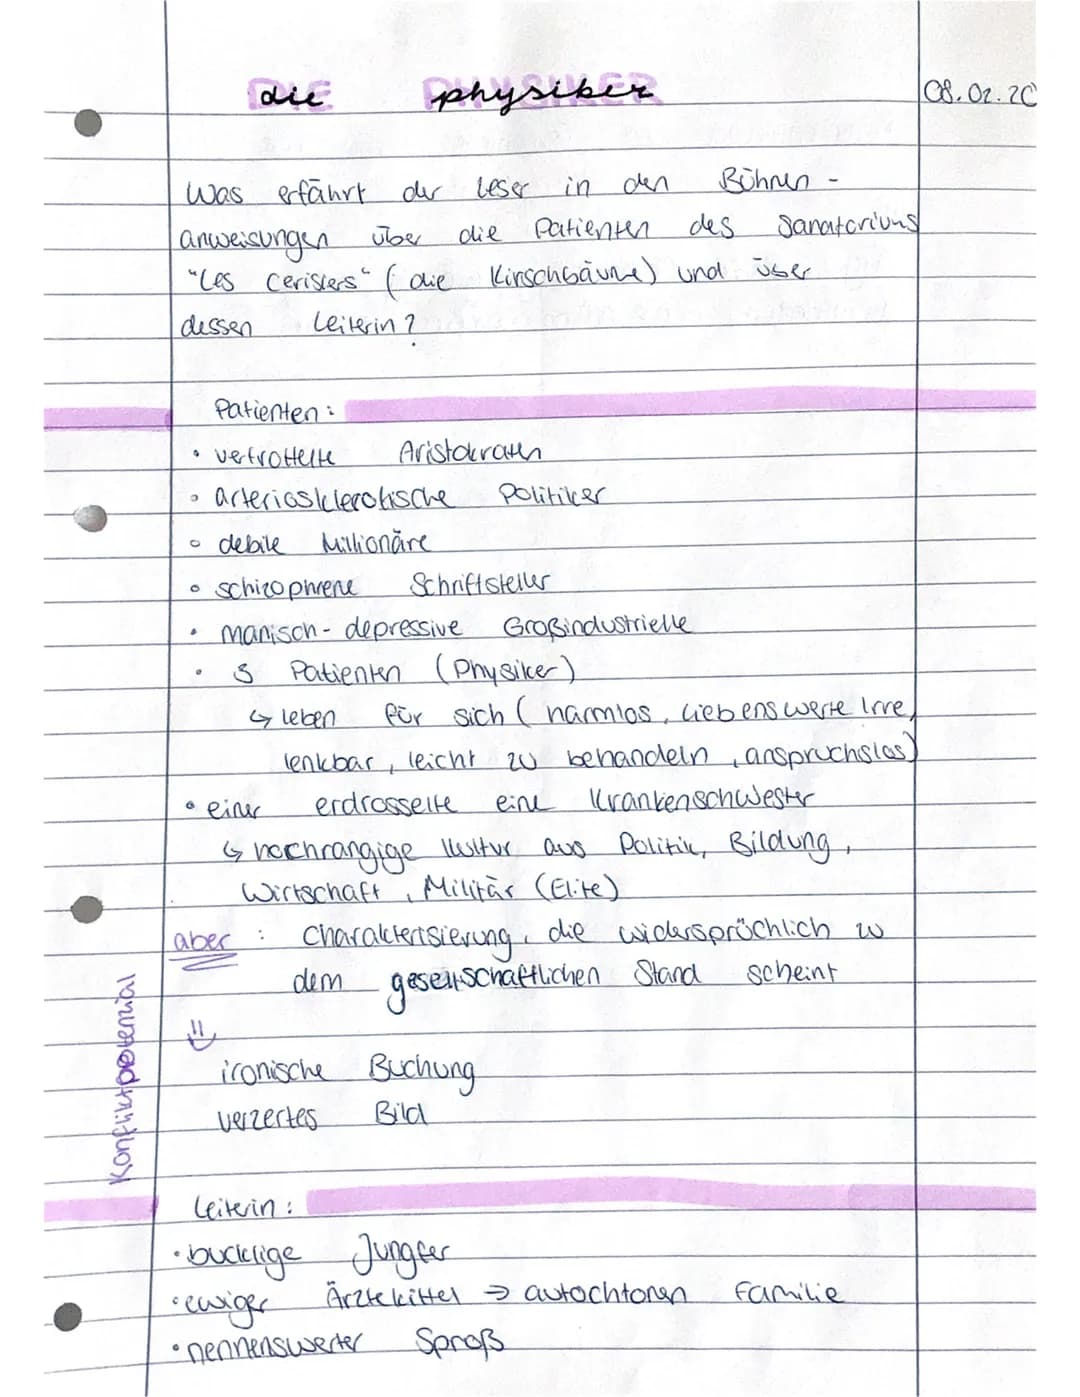 die physiker
08.02.20
Was erfährt der Leser in den Bühnen-
anweisungen über die Patienten des Sanatoriums
"Les Cerisiers" (die Kirschbäume) und über
dessen Leiterin?
Patienten:
• vertrottelte Aristokraten
• arteriosklerotische Politiker
• debile Millionäre
• schizophrene Schriftsteller
• manisch-depressive Großindustrielle
• 3 Patienten (Physiker)
↳ leben für sich (harmlos, liebenswerte Irre,
lenkbar, leicht zu behandeln, anspruchslos)
• einer erdrosselte eine Krankenschwester
↳ hochrangige Kultur aus Politik, Bildung,
Wirtschaft, Militär (Elite)
aber: Charakterisierung, die widersprüchlich zu
dem gesellschaftlichen Stand scheint
Konfliktpotenzial
ironische Buchung
verzertes Bild
Leiterin:
• bucklige Jungfer
• ewiger Ärztekittel → autochtonen Familie
• nennenswerter Sproß